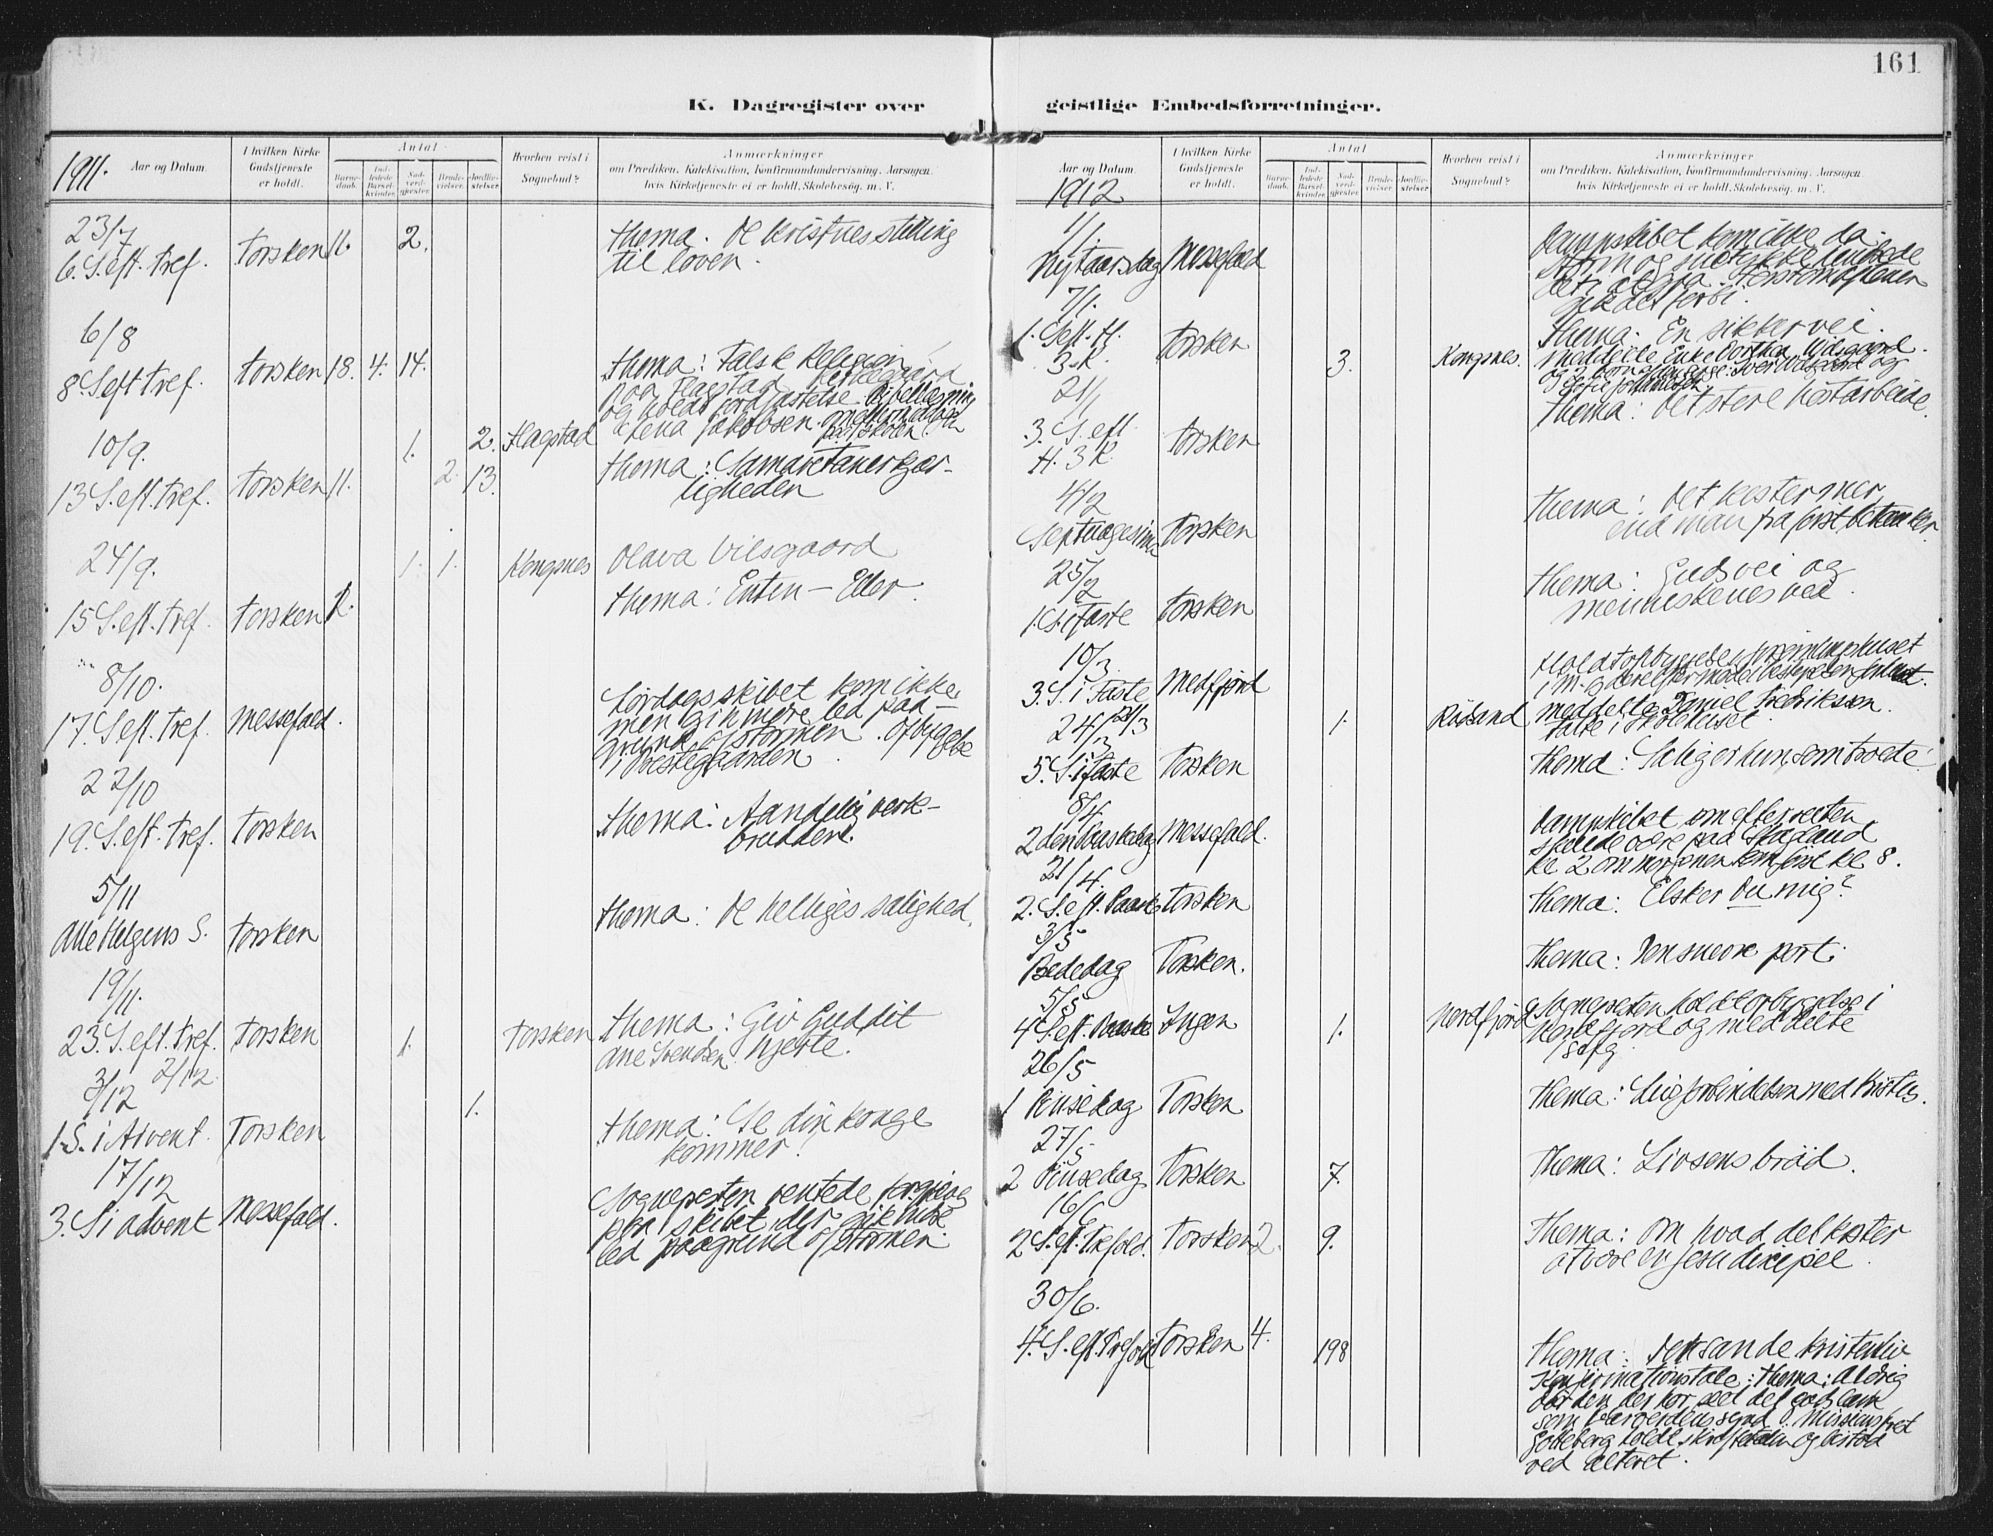 161
K. Dagregister over
geistlige Embedsforretninger.
1911. Aar og Datum
I hvilken Kirke Gudstjeneste er holdt.
Antal
Barnedaab.
Indledede Barselkvinder.
Nadverdgjester
Brudevielser.
Jordfæstelser.
Hvorhen reist i Sognebud?
Anmærkninger
om Prædiken, Katekisation, Konfirmandundervisning, Aarsagen,
hvis Kirketjeneste ei er holdt, Skolebesøg, m. V.
23/7
6. S. eft. tref. Torsken 11. 2. Thema. De kristnes stilling
til loven.
6/8
8. S. eft tref. Torsken 18. 4. 14. Thema: Falsk Religion
paa Flagstad
og holdt jordfæstelse Bibellæsning
Lena Jakobsen
10/9. 1. 2. Flagstad
13 S. eft. tref. Torsken 11. 2. 13. Thema: Samaritanerkjær-
ligheden
24/9. 1. 1. Kongsnes Olava Vilsgaard
15 S. eft. tref. Torsken Thema: Enten – Eller.
8/10.
17. S. eft. tref. Messefald. Lørdagsskibet kom ikke
men gik nordre led paa
grund af stormen. Opbyggelse
i Prestegaarden
22/10
19. S. eft. tref. Torsken Thema: Aandelig verk-
bruddene.
5/11
Alle Helgens S. Torsken Thema: De helliges salighed.
19/11.
23. S. eft. tref. Torsken 1. Torsken Thema: Giv Gud dit
Ane Svendsen. hjerte.
3/12 2/12. 1.
1 S. i Advent. Torsken Thema: Se din konge
kommer!
17/12
3. S i advent Messefald. Sognepresten ventede forgjæves
paa skibet, der gik
led paagrund af stormen.
Aar og Datum
1912
I hvilken Kirke Gudstjeneste er holdt.
Antal
Barnedaab.
Indledede Barselkvinder.
Nadverdgjester
Brudevielser.
Jordfæstelser.
Hvorhen reist i Sognebud?
Anmærkninger
om Prædiken, Katekisation, Konfirmandundervisning, Aarsagen,
hvis Kirketjeneste ei er holdt, Skolebesøg, m. V.
1/1. Dampskibet kom ikke da
Nytaarsdag Messefald storm og snetykke hindrede
det i at gaa.
gik det forbi.
7/1.
1. S. eft. H. 3 K. Torsken 3. Kongsnes. Thema: En sikker vei.
meddelte Enke Dorthea Vilsgaard
21/1
3. S. eft. H. 3 K. Torsken Thema: Det store høstarbeide.
4/2
Septuagesima Torsken Thema: Det koster mer,
end man fra først betænker.
25/2
1. S. i Faste Torsken Thema: Guds vei og
menneskenes vei.
10/3.
3. S. i Faste Medfjord Holdt opbyggelse
24/3 21/3 1. Rødsand meddelte Daniel Fredriksen.
talte i Skolehuset.
5. S. i faste Torsken Thema: Salig er hun, som troede!
8/4
2den Paaskedag Messefald. Dampskibet som efter ruten
skulde være paa Skaland
kl 2 om morgenen kom først kl 8.
21/4.
2. S. eft. Paaske Torsken Thema: Elsker Du mig?
3/5
Bededag Torsken. Thema: Den snevre port.
5/5
4 S. eft. Paaske Ingen 1. Nordfjord Sognepresten holdt opbyggelse i
Nordfjord og meddelte
26/5
1 Pinsedag Torsken Thema: Livsforbindelsen med Kristus.
27/5
2 Pinsedag Torsken 7. Thema: Livsens brød.
16/6
2 S. eft. Trefold. Torsken 2. 9. Thema: Om hvad det koster
at være en Jesu dicipel.
30/6.
4. S. eft. Trefold Torsken 4. 198 Thema: Det sande kristenliv
Konfirmationstale: Thema: Aldrig
dør den der har set det Guds lam
som bær verdens synd.
Solleberg holdt skriftetalen og bistod
ved alteret.